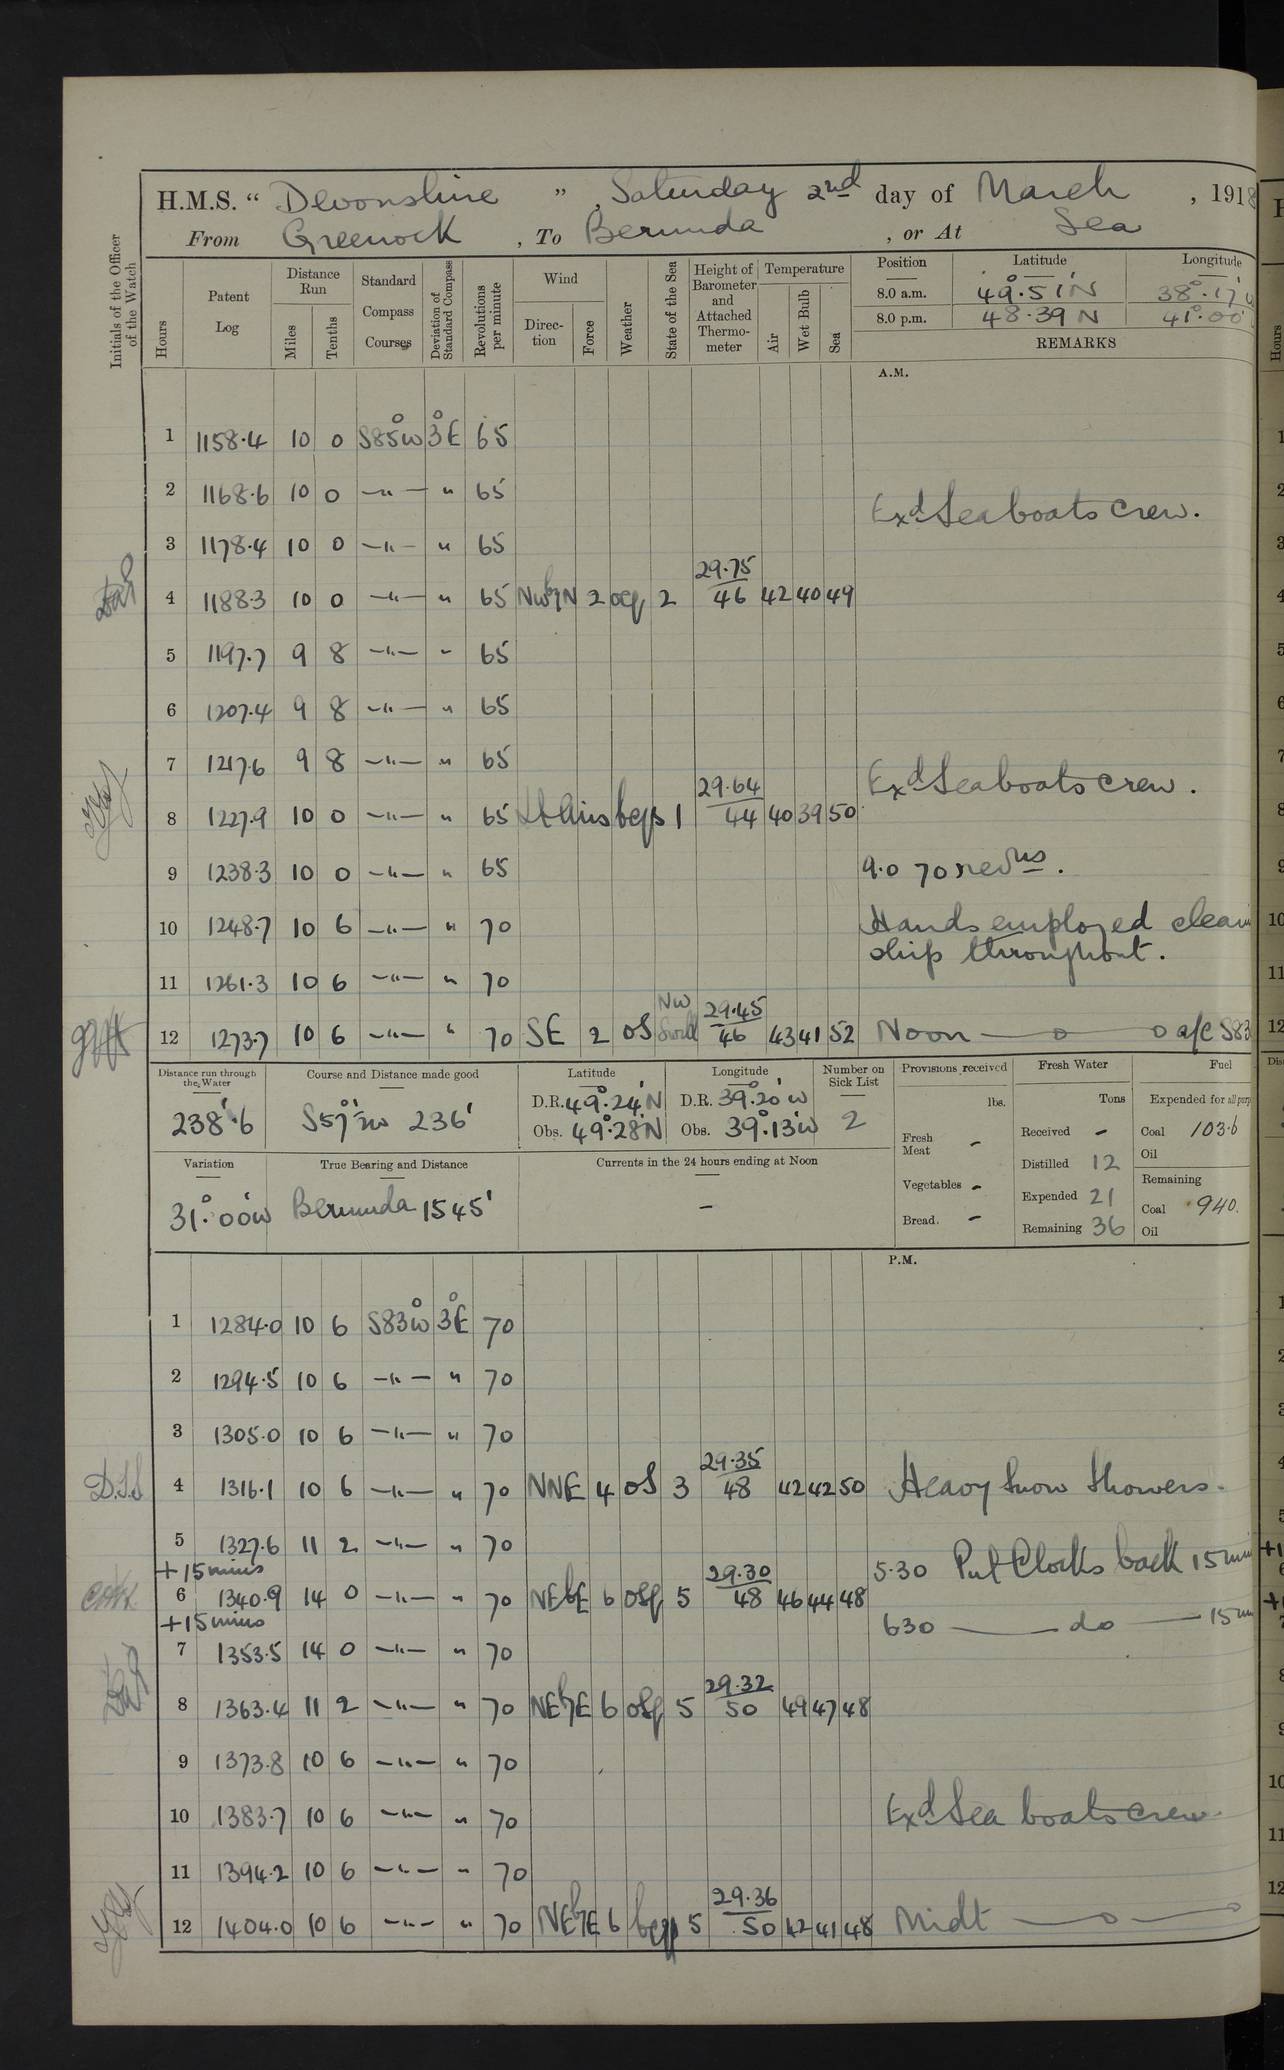 H.M.S. “ Devonshire ” , Saturday 2nd day of March , 1918
From Greenock , To Bermuda , or At Sea
Initials of the Officer of the Watch
Hours
Patent Log
Distance Run
Miles
Tenths
Standard Compass Courses
Deviation of Standard Compass
Revolutions per minute
Wind
Direc-tion
Force
Weather
State of the Sea
Height of Barometer and Attached Thermo-meter
Temperature
Air
Wet Bulb
Sea
Position Latitude Longitude
8.0 a.m. 49°.51'N 38°.17'
8.0 p.m. 48.39 N 41°.00'
REMARKS
A.M.
1 1158.4 10 0 S85°W 3°E 65
2 1168.6 10 0 —"— " 65
Exd Seaboats crew.
3 1178.4 10 0 —"— " 65
4 1188.3 10 0 —"— " 65 NWbyN 2 ocq 2 29.75 46 42 40 49
5 1197.7 9 8 —"— " 65
6 1207.4 9 8 —"— " 65
7 1217.6 9 8 —"— " 65
Exd Seaboats crew.
8 1227.9 10 0 —"— " 65 Lt Airs bcps 1 29.64 44 40 39 50
9 1238.3 10 0 —"— " 65 9.0 70 revns.
10 1248.7 10 6 —"— " 70 Hands employed clean
ship throughout.
11 1261.3 10 6 —"— " 70
12 1273.7 10 6 —"— " 70 SE 2 os NW Swell 29.45 46 43 41 52 Noon —o— o a/c S83
Distance run through the Water
238'.6
Course and Distance made good
S57°W 236'
Latitude
D.R. 49°.24'N
Obs. 49°.28'N
Longitude
D.R. 39°.20'W
Obs. 39°.13'W
Number on Sick List
2
Provisions received
lbs.
Fresh Meat -
Vegetables -
Bread. -
Fresh Water
Tons
Received -
Distilled 12
Expended 21
Remaining 36
Fuel
Expended for all purp
Coal 103.6
Oil
Remaining
Coal 940.
Oil
Variation
31°.00'W
True Bearing and Distance
Bermuda 1545'
Currents in the 24 hours ending at Noon
-
P.M.
1 1284.0 10 6 S83°W 3°E 70
2 1294.5 10 6 —"— " 70
3 1305.0 10 6 —"— " 70
D.S.S 4 1316.1 10 6 —"— " 70 NNE 4 os 3 29.35 48 42 42 50 Heavy Snow Showers.
5 1327.6 11 2 —"— " 70
+15 mins 5.30 Put Clocks back 15 min
6 1340.9 14 0 —"— " 70 NEbE 6 osq 5 29.30 48 46 44 48
+15 mins 630 — do — 15 m
7 1353.5 14 0 —"— " 70
8 1363.4 11 2 —"— " 70 NEbyE 6 osq 5 29.32 50 49 47 48
9 1373.8 10 6 —"— " 70
10 1383.7 10 6 —"— " 70 Exd Sea boats crew.
11 1394.2 10 6 —"— " 70
12 1404.0 10 6 —"— " 70 NEbyE 6 5 29.36 50 42 41 48 Midt —o—o